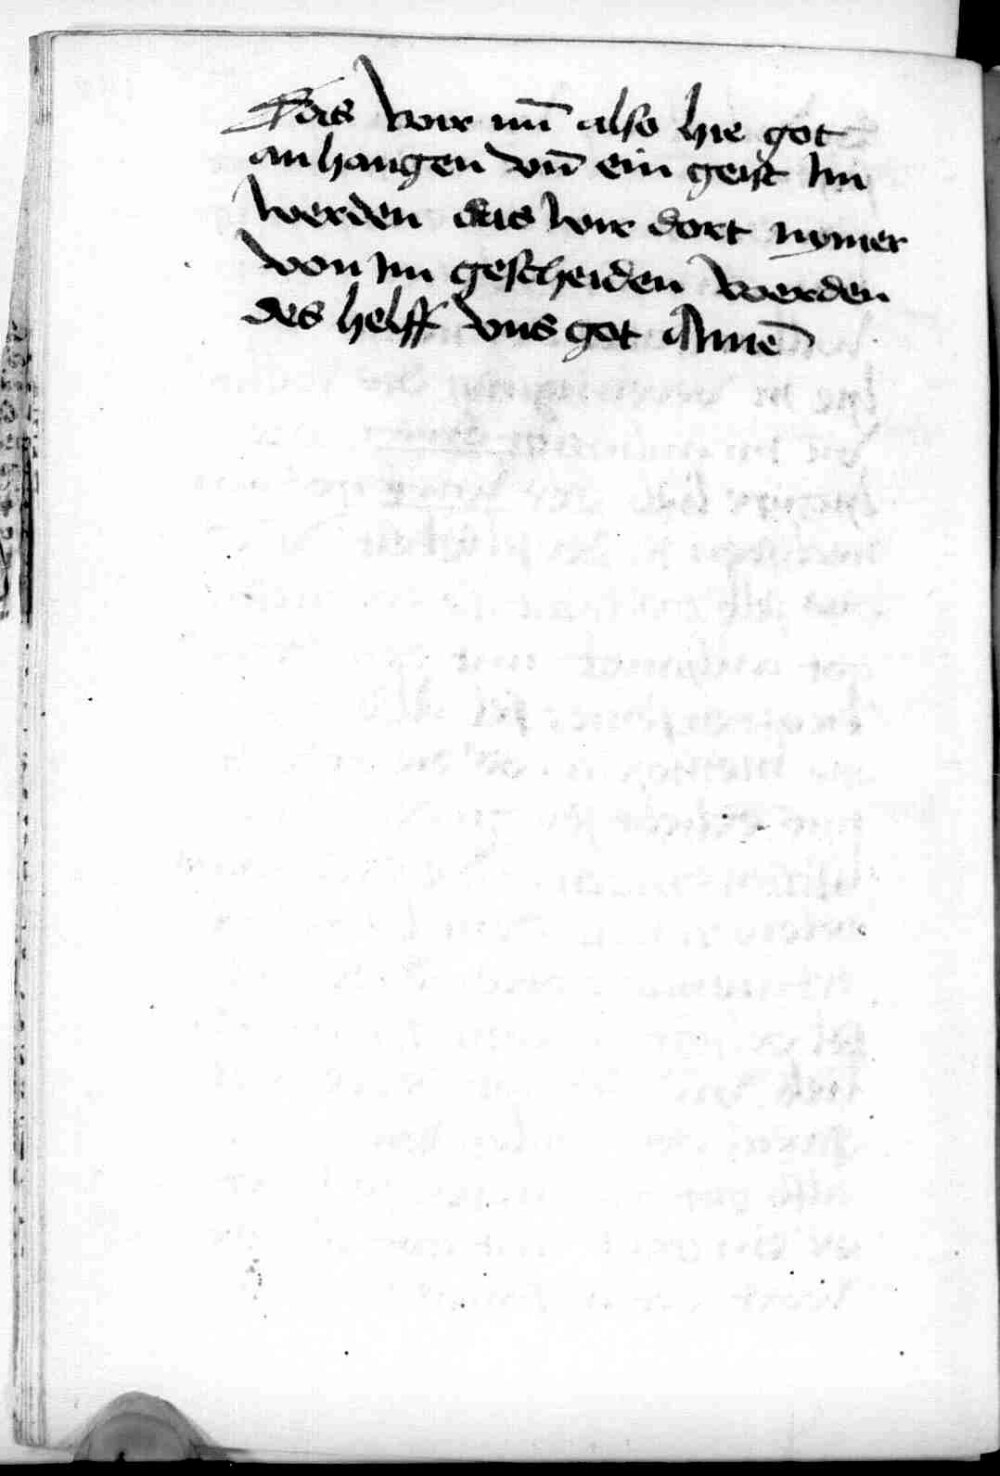 Das wir nu̅ also hie got
an hangen vn̅ ein geist Im
werden das wir dort nymer
von Im gescheiden werden
des helff vns got Ame̅